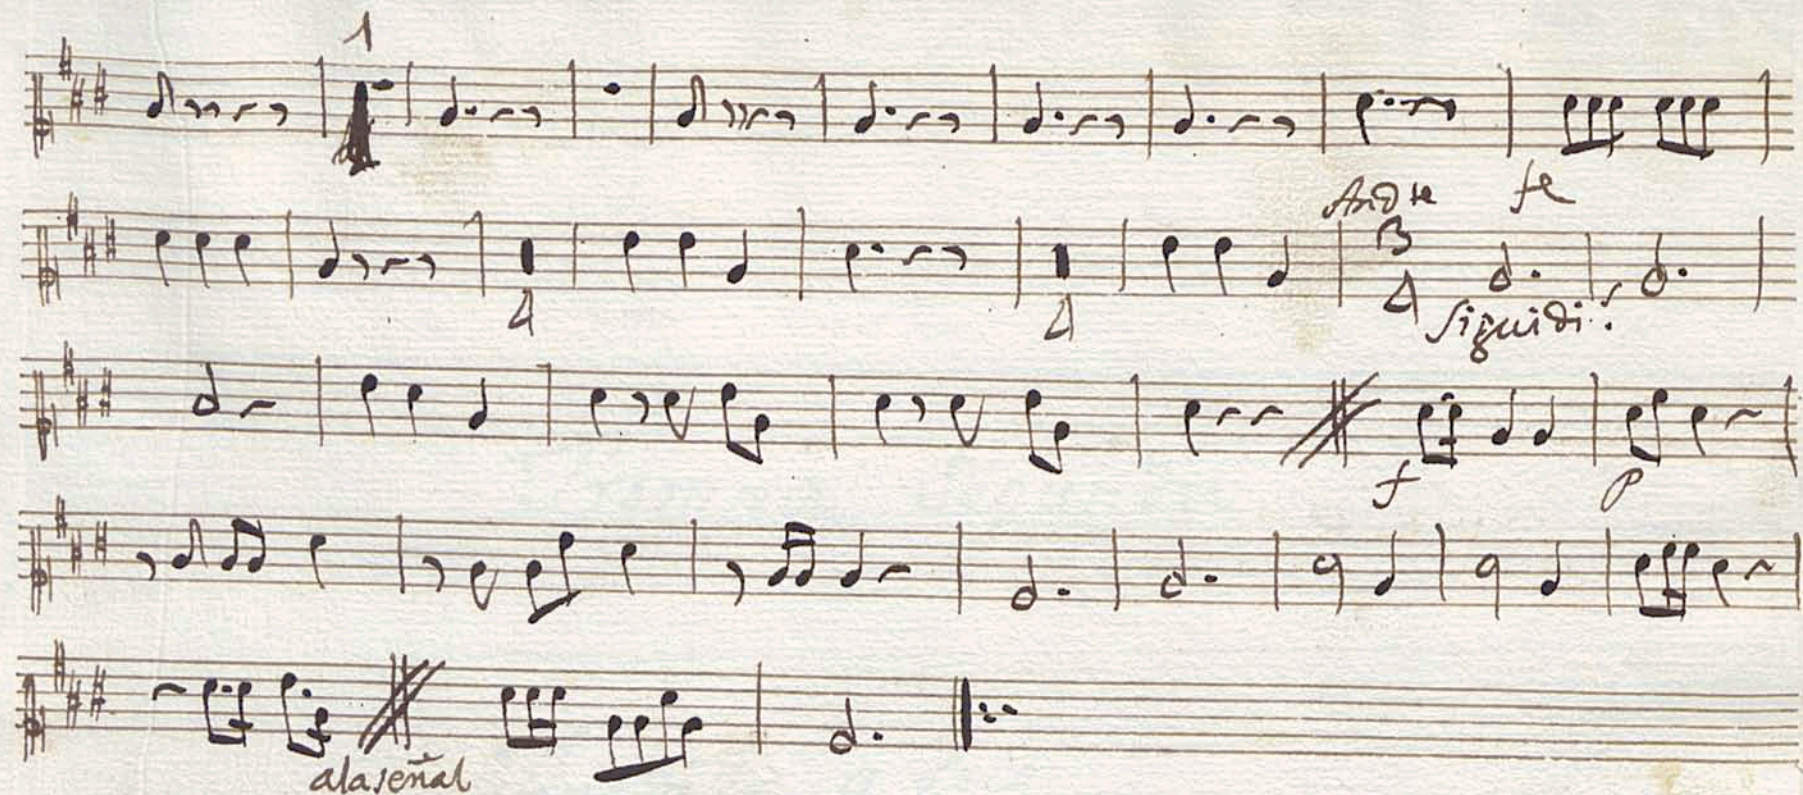 1
And te fe
4 4 3 4 Siguidi.s
f p
alaseñal